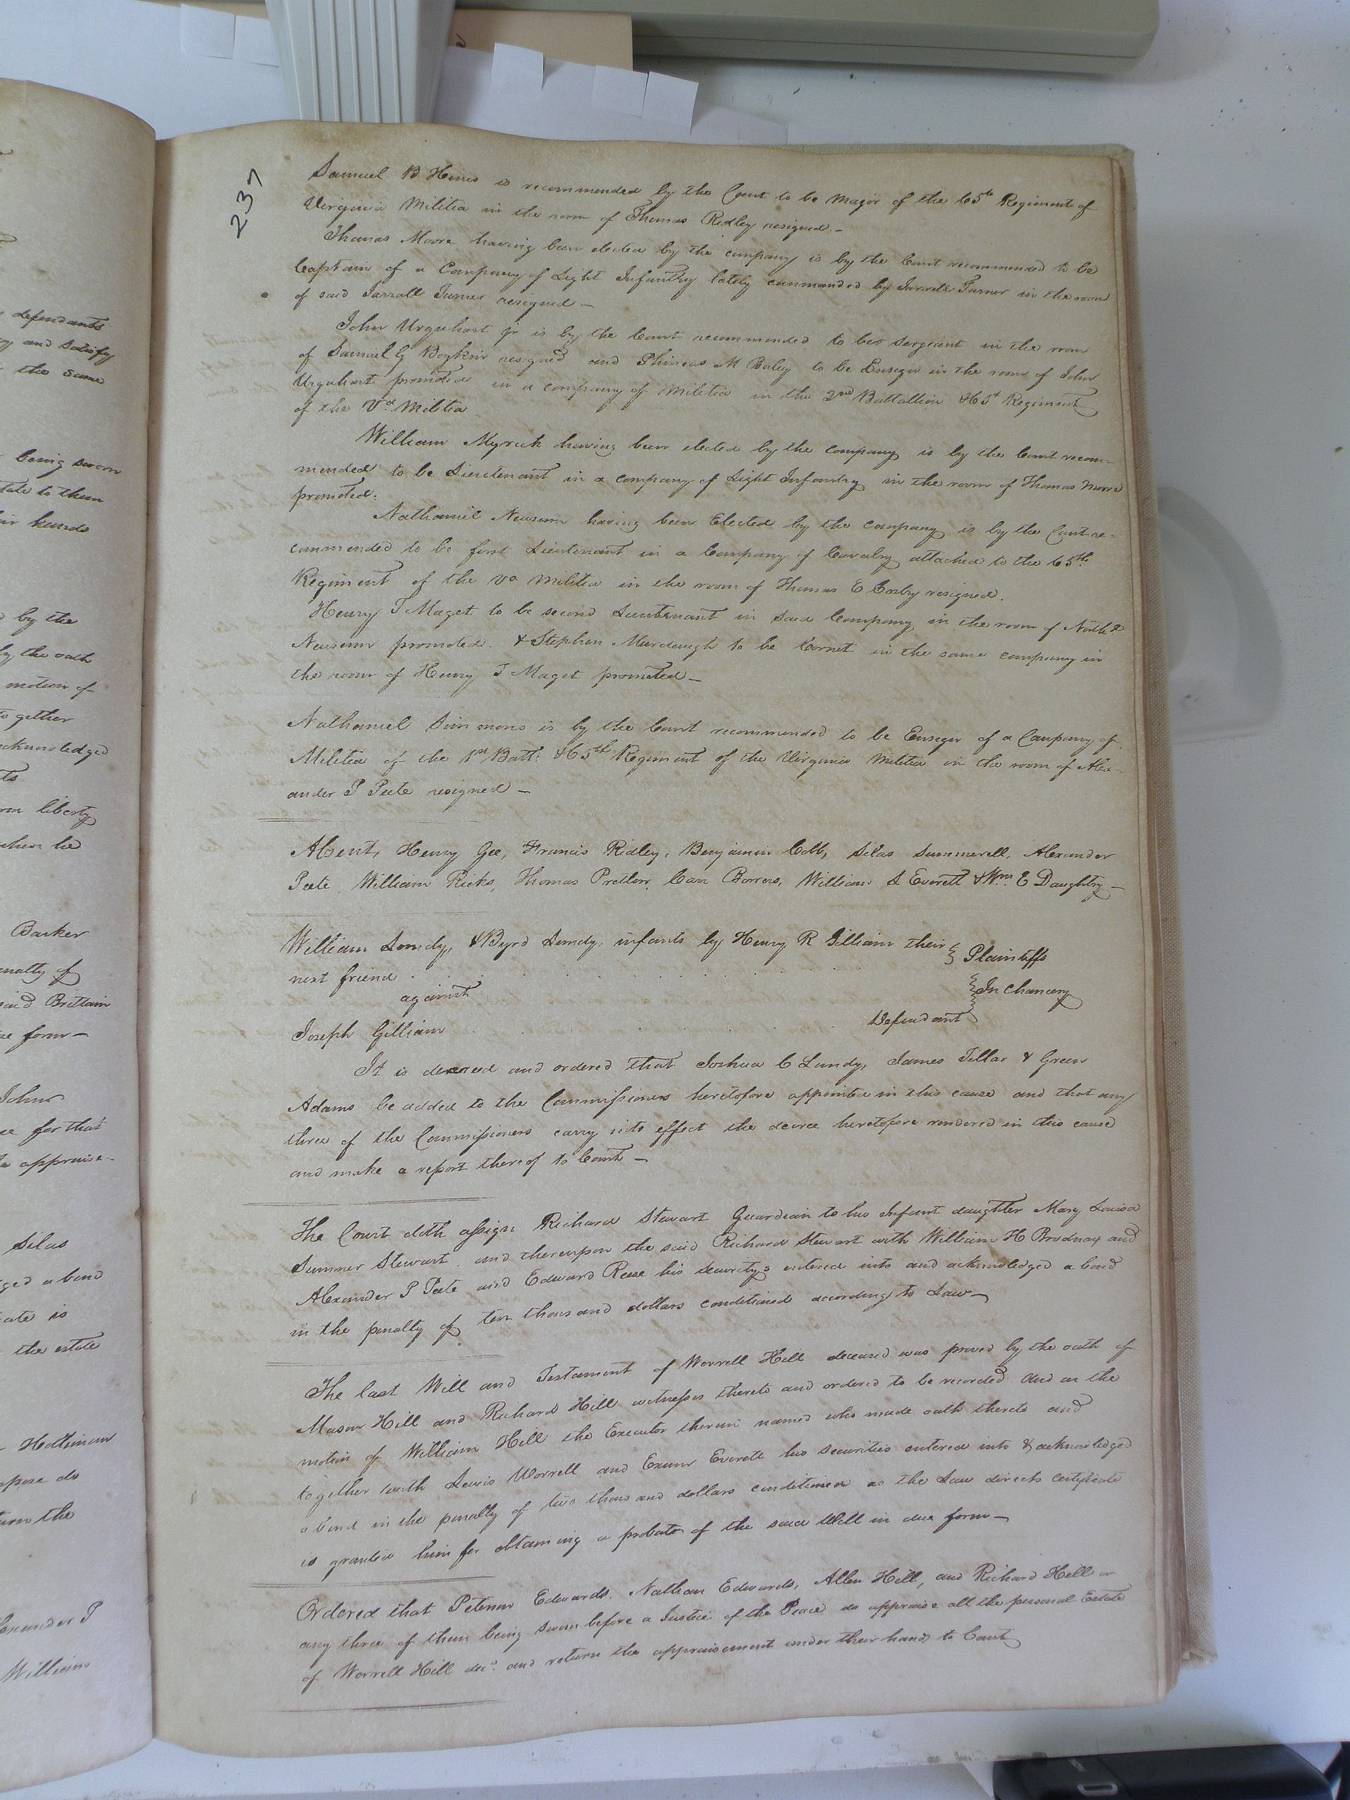 237
Samuel B Hines is recommended by the Court to be Major of the 65th Regiment of
Virginia Militia in the room of Thomas Ridley resigned —
Thomas Moore having been elected by the company is by the Court recommended to be
Captain of a Company of Light Infantry lately commanded by Jarratt Turner in the room
of said Jarratt Turner resigned —
John Urquhart Jr is by the Court recommended to be in the room
of Samuel G Boykin resigned and M Briley to be Ensign in the room of John
Urquhart promoted in a company of Militia in the 2nd Battallion & 65th Regiment
of the Va Militia
William Myrick having been elected by the company is by the Court recom-
mended to be Lieutenant in a company of Light Infantry in the room of Thomas Moore
promoted.
Nathaniel Newsum having been Elected by the company is by the Court re-
commended to be first Lieutenant in a Company of Cavalry attached to the 65th
Regiment of the Va Militia in the room of Thomas E resigned.
Henry T Maget to be second Lieutenant in said Company in the room of Nathl
Newsum promoted & Stephen Murdaugh to be Cornet in the same company in
the room of Henry T Maget promoted —
Nathaniel Simmons is by the Court recommended to be Ensign of a Company of
Militia of the 1st Batt: & 65th Regiment of the Virginia Militia in the room of Alex-
ander P Peete resigned —
Absent, Henry Gee, Francis Ridley, Benjamin Cobb, Silas Summerell, Alexander
Peete, William Ricks, Thomas Pretlow, Carr Bowers, William S Everett & Wm E Daughtry —
William Lundy, & Byrd Lundy, infants by Henry R Gilliam their
next friend
Plaintiffs
against
In Chancery
Joseph Gilliam
Defendant
It is decreed and ordered that Joshua C Lundy, James Tillar & Green
Adams be added to the Commissioners heretofore appointed in this cause and that any
three of the Commissioners carry into effect the decree heretofore rendered in this cause
and make a report thereof to Court —
The Court doth assign Richard Stewart Guardian to his Infant daughter Mary Louisa
Sumner Stewart and thereupon the said Richard Stewart with William H Brodnax and
Alexander P Peete and Edward Reese his securitys entered into and acknowledged a bond
in the penalty of ten thousand dollars conditioned according to Law —
The last Will and Testament of Worrell Hill deceased was proved by the oath of
Mason Hill and Richard Hill witnesses thereto and ordered to be recorded and on the
motion of William Hill the Executor therein named who made oath thereto and
together with Lewis Worrell and Exum Everett his securities entered into & acknowledged
a bond in the penalty of two thousand dollars conditioned as the Law directs certificate
is granted him for obtaining a probate of the said Will in due form —
Ordered that Edwards, Nathan Edwards, Allen Hill, and Richard Hill or
any three of them being sworn before a Justice of the Peace do appraise all the personal Estate
of Worrell Hill decd and return the appraisement under their hands to Court
defendants
and satisfy
the same
being sworn
to them
hands
by the
by the oath
motion of
together
acknowledged
liberty
when he
Barker
penalty of
said Brittain
form —
John
for that
appraise-
Silas
a bond
is
the estate
do
the
Alexander P
William